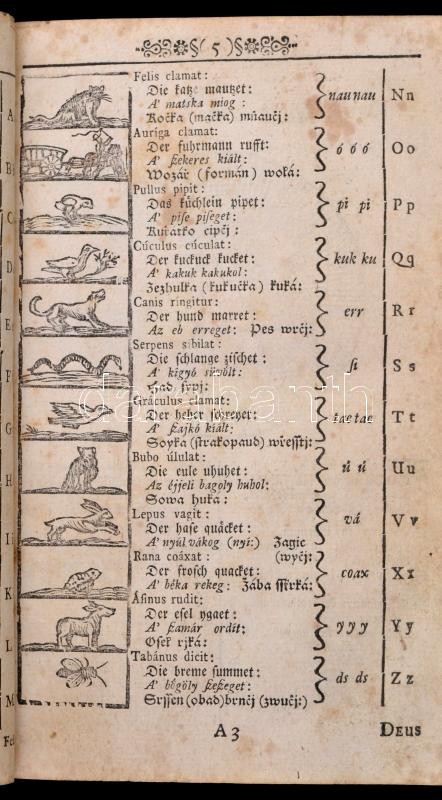 (5)
Felis clamat:
Die katz mautzet:
A' matska miog:
Kočka (mačka) mňaučj:
nau nau Nn
Auriga clamat:
Der fuhrmann rufft:
A' ſzekeres kiált:
Wozář (formán) woká:
ó ó ó Oo
Pullus pipit:
Das küchlein pipet:
A' piſe piſeget:
Kuřátko cipčj:
pi pi Pp
Cúculus cúculat:
Der kuckuck kucket:
A' kakuk kakukol:
Žežhulka (kukučka) kuká:
kuk ku Qq
Canis ringitur:
Der hund marret:
Az eb erreget: Pes wrčj:
err Rr
Serpens sibilat:
Die ſchlange ziſchet:
A' kigyó sivölt:
Had ſypj:
ſi Ss
Gráculus clamat:
Der heher ſchreyet:
A' ſzajkó kiált:
Soyka (ſtrakopaud) wřeſſtj:
tae tae Tt
Bubo úlulat:
Die eule uhuhet:
Az éjjeli bagoly huhol:
Sowa huká:
ú ú Uu
Lepus vagit:
Der haſe quäcket:
A' nyúl vákog (nyí:) Zagic
(wyčj:
vá Vv
Rana coáxat:
Der froſch quacket:
A' béka rekeg: Žába ſſkřeká:
coax Xx
Áſinus rudit:
Der eſel ygaet:
A' ſzamár ordit:
Oſel rjká:
y y y Yy
Tabánus dicit:
Die breme ſummet:
A' bögöly ſzeſzeget:
Srſſen (obad) brnčj (zwučj:)
ds ds Zz
A 3 DEUS
A
B
C
D
E
F
G
H
I
K
L
M
Fe
darabanth